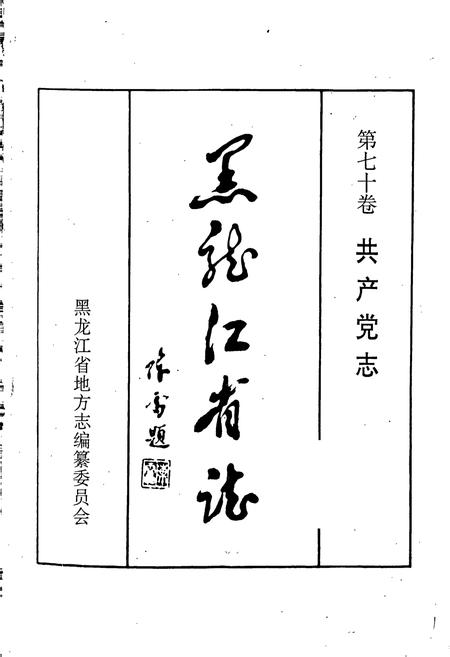 第七十卷 共产党志
黑龙江省志
陈雷题
黑龙江省地方志编纂委员会